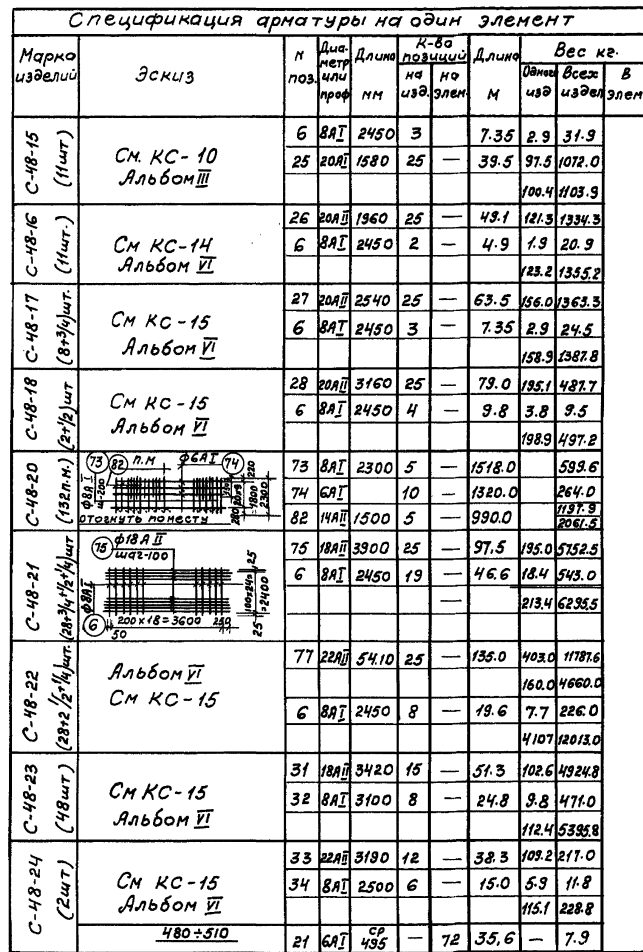 Спецификация арматуры на один элемент
Марка изделий Эскиз N поз. Диаметр или проф Длина мм К-во позиций на изд. на элем. Длина м Вес кг. Одного изд Всех издел В элем
С-48-15 (11шт) См. КС-10 Альбом III
6 8АI 2450 3 7.35 2.9 31.9
25 20АI 1580 25 — 39.5 97.5 1072.0
100.4 1103.9
С-48-16 (11шт.) См КС-14 Альбом VI
26 20АII 1960 25 — 49.1 121.3 1334.3
6 8АI 2450 2 — 4.9 1.9 20.9
123.2 1355.2
С-48-17 (8+3/4)шт. См КС-15 Альбом VI
27 20АII 2540 25 — 63.5 156.0 1363.3
6 8АI 2450 3 — 7.35 2.9 24.5
158.9 1387.8
С-48-18 (2+1/2)шт См КС-15 Альбом VI
28 20АII 3160 25 — 79.0 195.1 487.7
6 8АI 2450 4 — 9.8 3.8 9.5
198.9 497.2
С-48-20 (132п.м.)
73 82 п.м ф6АI 74
ф8АI ш-200
220 =1800 2300
отогнуть поместу
73 8АI 2300 5 — 1518.0 599.6
74 6АI 10 — 1320.0 264.0
82 14АII 1500 5 — 990.0 1197.9
2061.5
С-48-21 (28+3/4+1/4+1/4)шт
75 ф18АII
шаг-100
ф8АI
25 100х24= =2400 25
6 200х18=3600 250
50
75 18АII 3900 25 — 97.5 195.0 5752.5
6 8АI 2450 19 — 46.6 18.4 543.0
— 213.4 6295.5
С-48-22 (28+2/2+1/4)шт. Альбом VI См КС-15
77 22АII 54.10 25 — 135.0 403.0 11787.6
160.0 4660.0
6 8АI 2450 8 — 19.6 7.7 226.0
4107 12013.0
С-48-23 (48шт) См КС-15 Альбом VI
31 18АII 3420 15 — 51.3 102.6 4924.8
32 8АI 3100 8 — 24.8 9.8 471.0
112.4 5395.8
С-48-24 (2шт) См КС-15 Альбом VI
33 22АII 3190 12 — 38.3 109.2 217.0
34 8АI 2500 6 — 15.0 5.9 11.8
115.1 228.8
480÷510
21 6АI ср 495 — 72 35,6 — 7.9